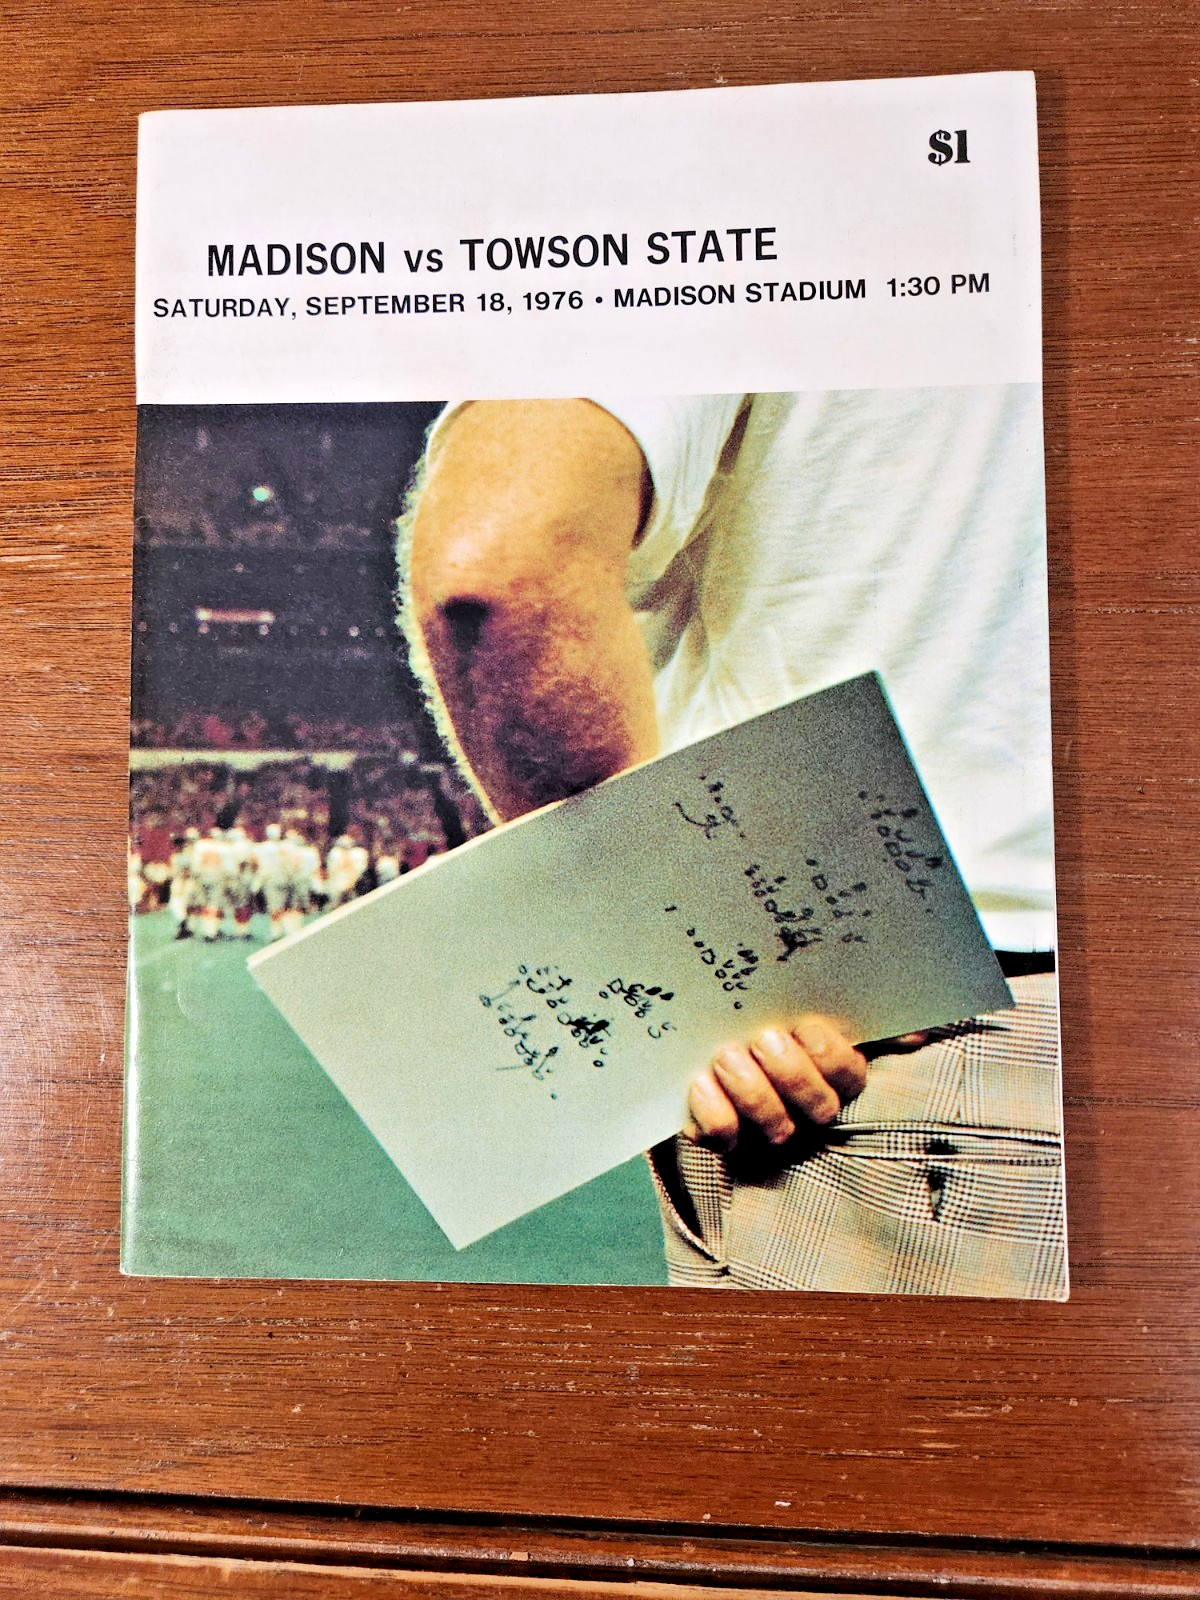 $1
MADISON vs TOWSON STATE
SATURDAY, SEPTEMBER 18, 1976 • MADISON STADIUM 1:30 PM